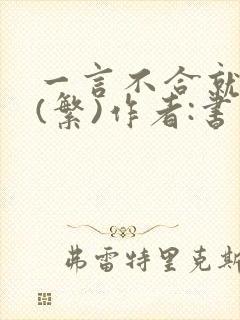 一言不合就
(繁)作者:書
弗雷特里克斯